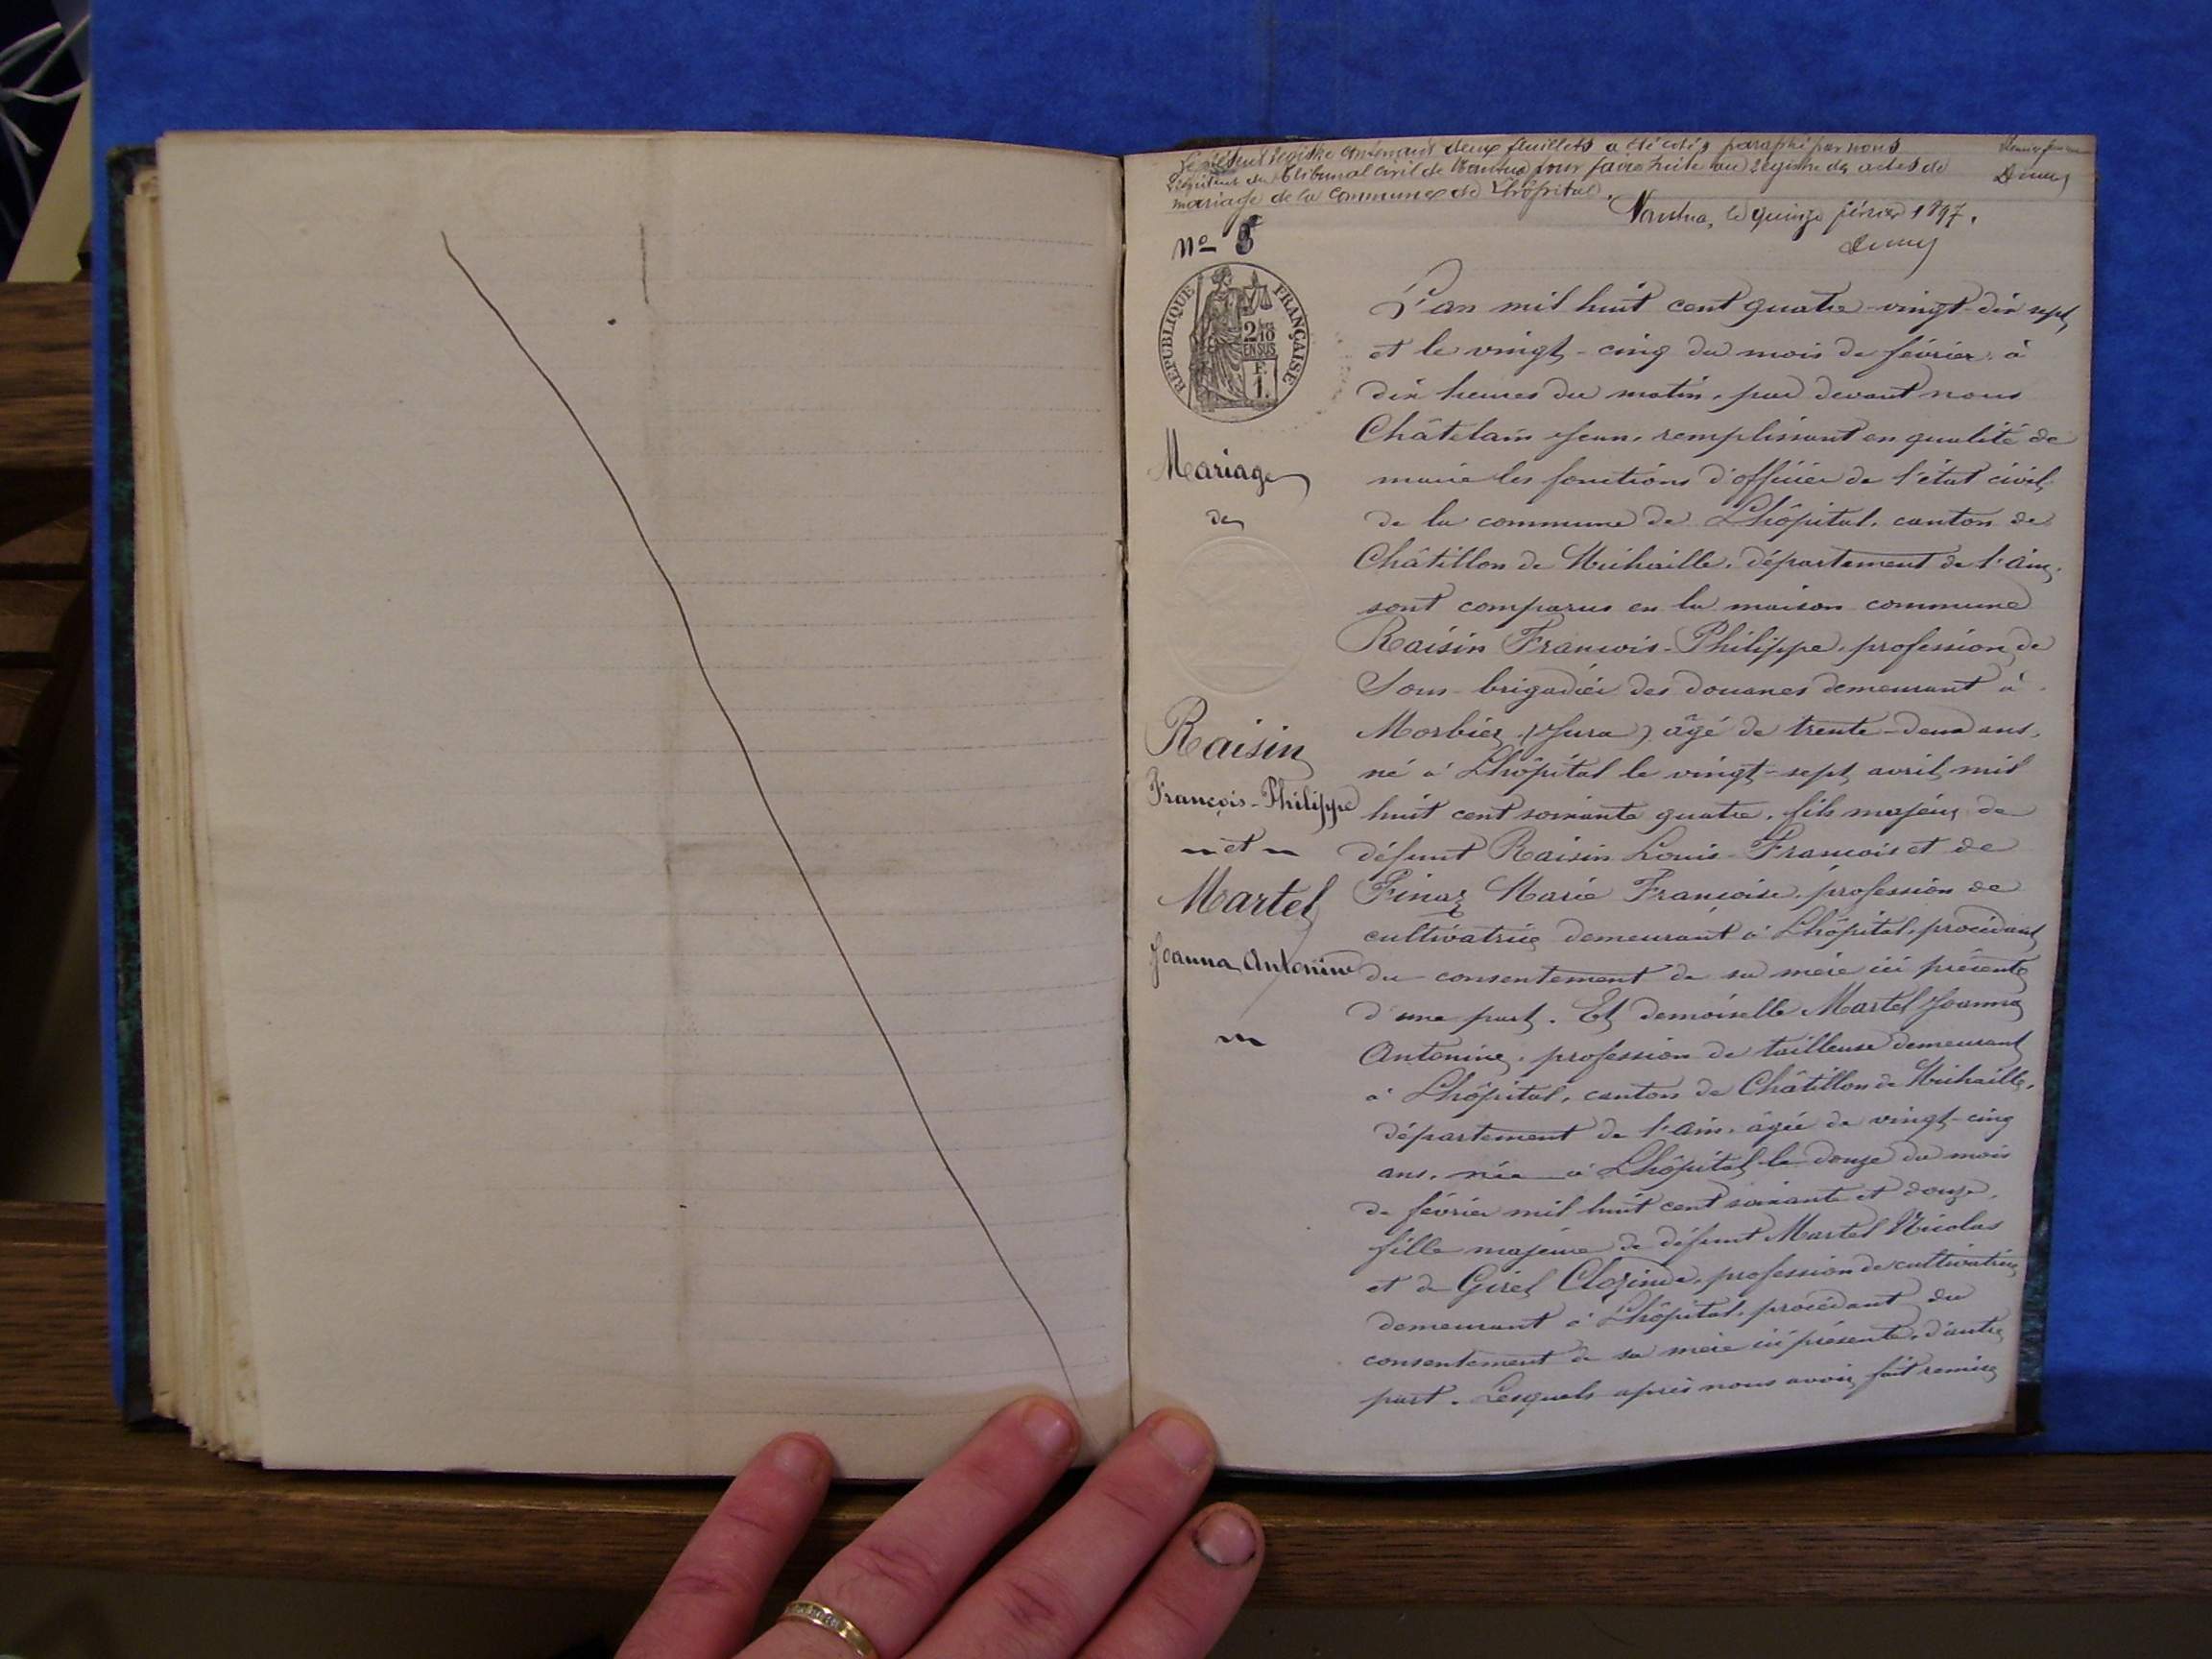 Le présent registre contenant deux feuillets a été coté & paraphé par nous
Président du Tribunal civil de Nantua pour faire suite au registre des actes de
mariage de la commune de Lhôpital.
Nantua, le quinze février 1897.
No 5
RÉPUBLIQUE FRANÇAISE
2/10
EN SUS
F.
1.
Mariage
de
Raisin
François-Philippe
et
Martel
Joanna Antonine
L'an mil huit cent quatre-vingt-dix sept
et le vingt-cinq du mois de février à
dix heures du matin, par devant nous
Châtelain Jean, remplissant en qualité de
maire les fonctions d'officier de l'état civil
de la commune de Lhôpital, canton de
Châtillon de Michaille, département de l'Ain,
sont comparus en la maison commune
Raisin Francois-Philippe, profession de
Sous-brigadier des douanes demeurant à
Morbier (Jura) âgé de trente-deux ans,
né à Lhôpital le vingt-sept avril mil
huit cent soixante quatre, fils majeur de
défunt Raisin Louis-Francois et de
Finaz Marie Françoise, profession de
cultivatrice demeurant à Lhôpital, procédant
du consentement de sa mère ici présente
d'une part. Et demoiselle Martel Joanna
Antonine, profession de tailleuse demeurant
à Lhôpital, canton de Châtillon de Michaille,
département de l'Ain, âgée de vingt-cinq
ans, née à Lhôpital le douze du mois
de février mil huit cent soixante et douze,
fille majeure de défunt Martel Nicolas
et de Girel Clozinde, profession de cultivatrice
demeurant à Lhôpital, procédant du
consentement de sa mère ici présente, d'autre
part. Lesquels après nous avoir fait remise